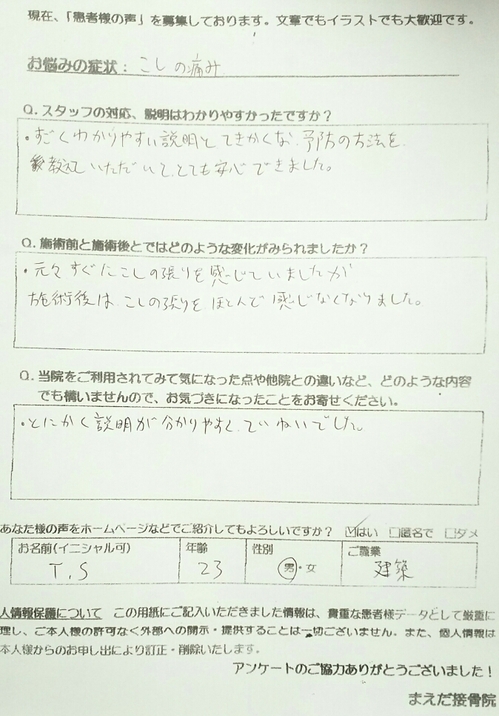 現在、「患者様の声」を募集しております。文章でもイラストでも大歓迎です。
お悩みの症状： こしの痛み
Q. スタッフの対応、説明はわかりやすかったですか？
・すごくわかりやすい説明とてきかくな予防の方法を
教えていただいて、とても安心できました。
Q. 施術前と施術後とではどのような変化がみられましたか？
・元々すぐにこしの張りを感じていましたが
施術後はこしの張りをほとんど感じなくなりました。
Q. 当院をご利用されてみて気になった点や他院との違いなど、どのような内容
でも構いませんので、お気づきになったことをお寄せください。
・とにかく説明が分かりやすく、ていねいでした。
あなた様の声をホームページなどでご紹介してもよろしいですか？ ☑はい □匿名で □ダメ
お名前(イニシャル可) 年齢 性別 ご職業
T.S 23 男・女 建築
人情報保護について この用紙にご記入いただきました情報は、貴重な患者様データとして厳重に
理し、ご本人様の許可なく外部への開示・提供することは一切ございません。また、個人情報は
本人様からのお申し出により訂正・削除いたします。
アンケートのご協力ありがとうございました！
まえだ接骨院